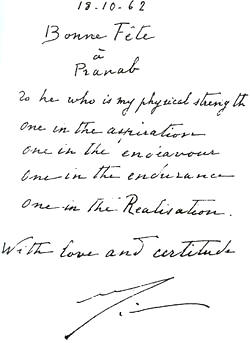 18-10-62
Bonne Fête
à
Pranab
To he who is my physical strength
one in the aspiration
one in the endeavour
one in the endurance
one in the Realisation.
With love and certitude